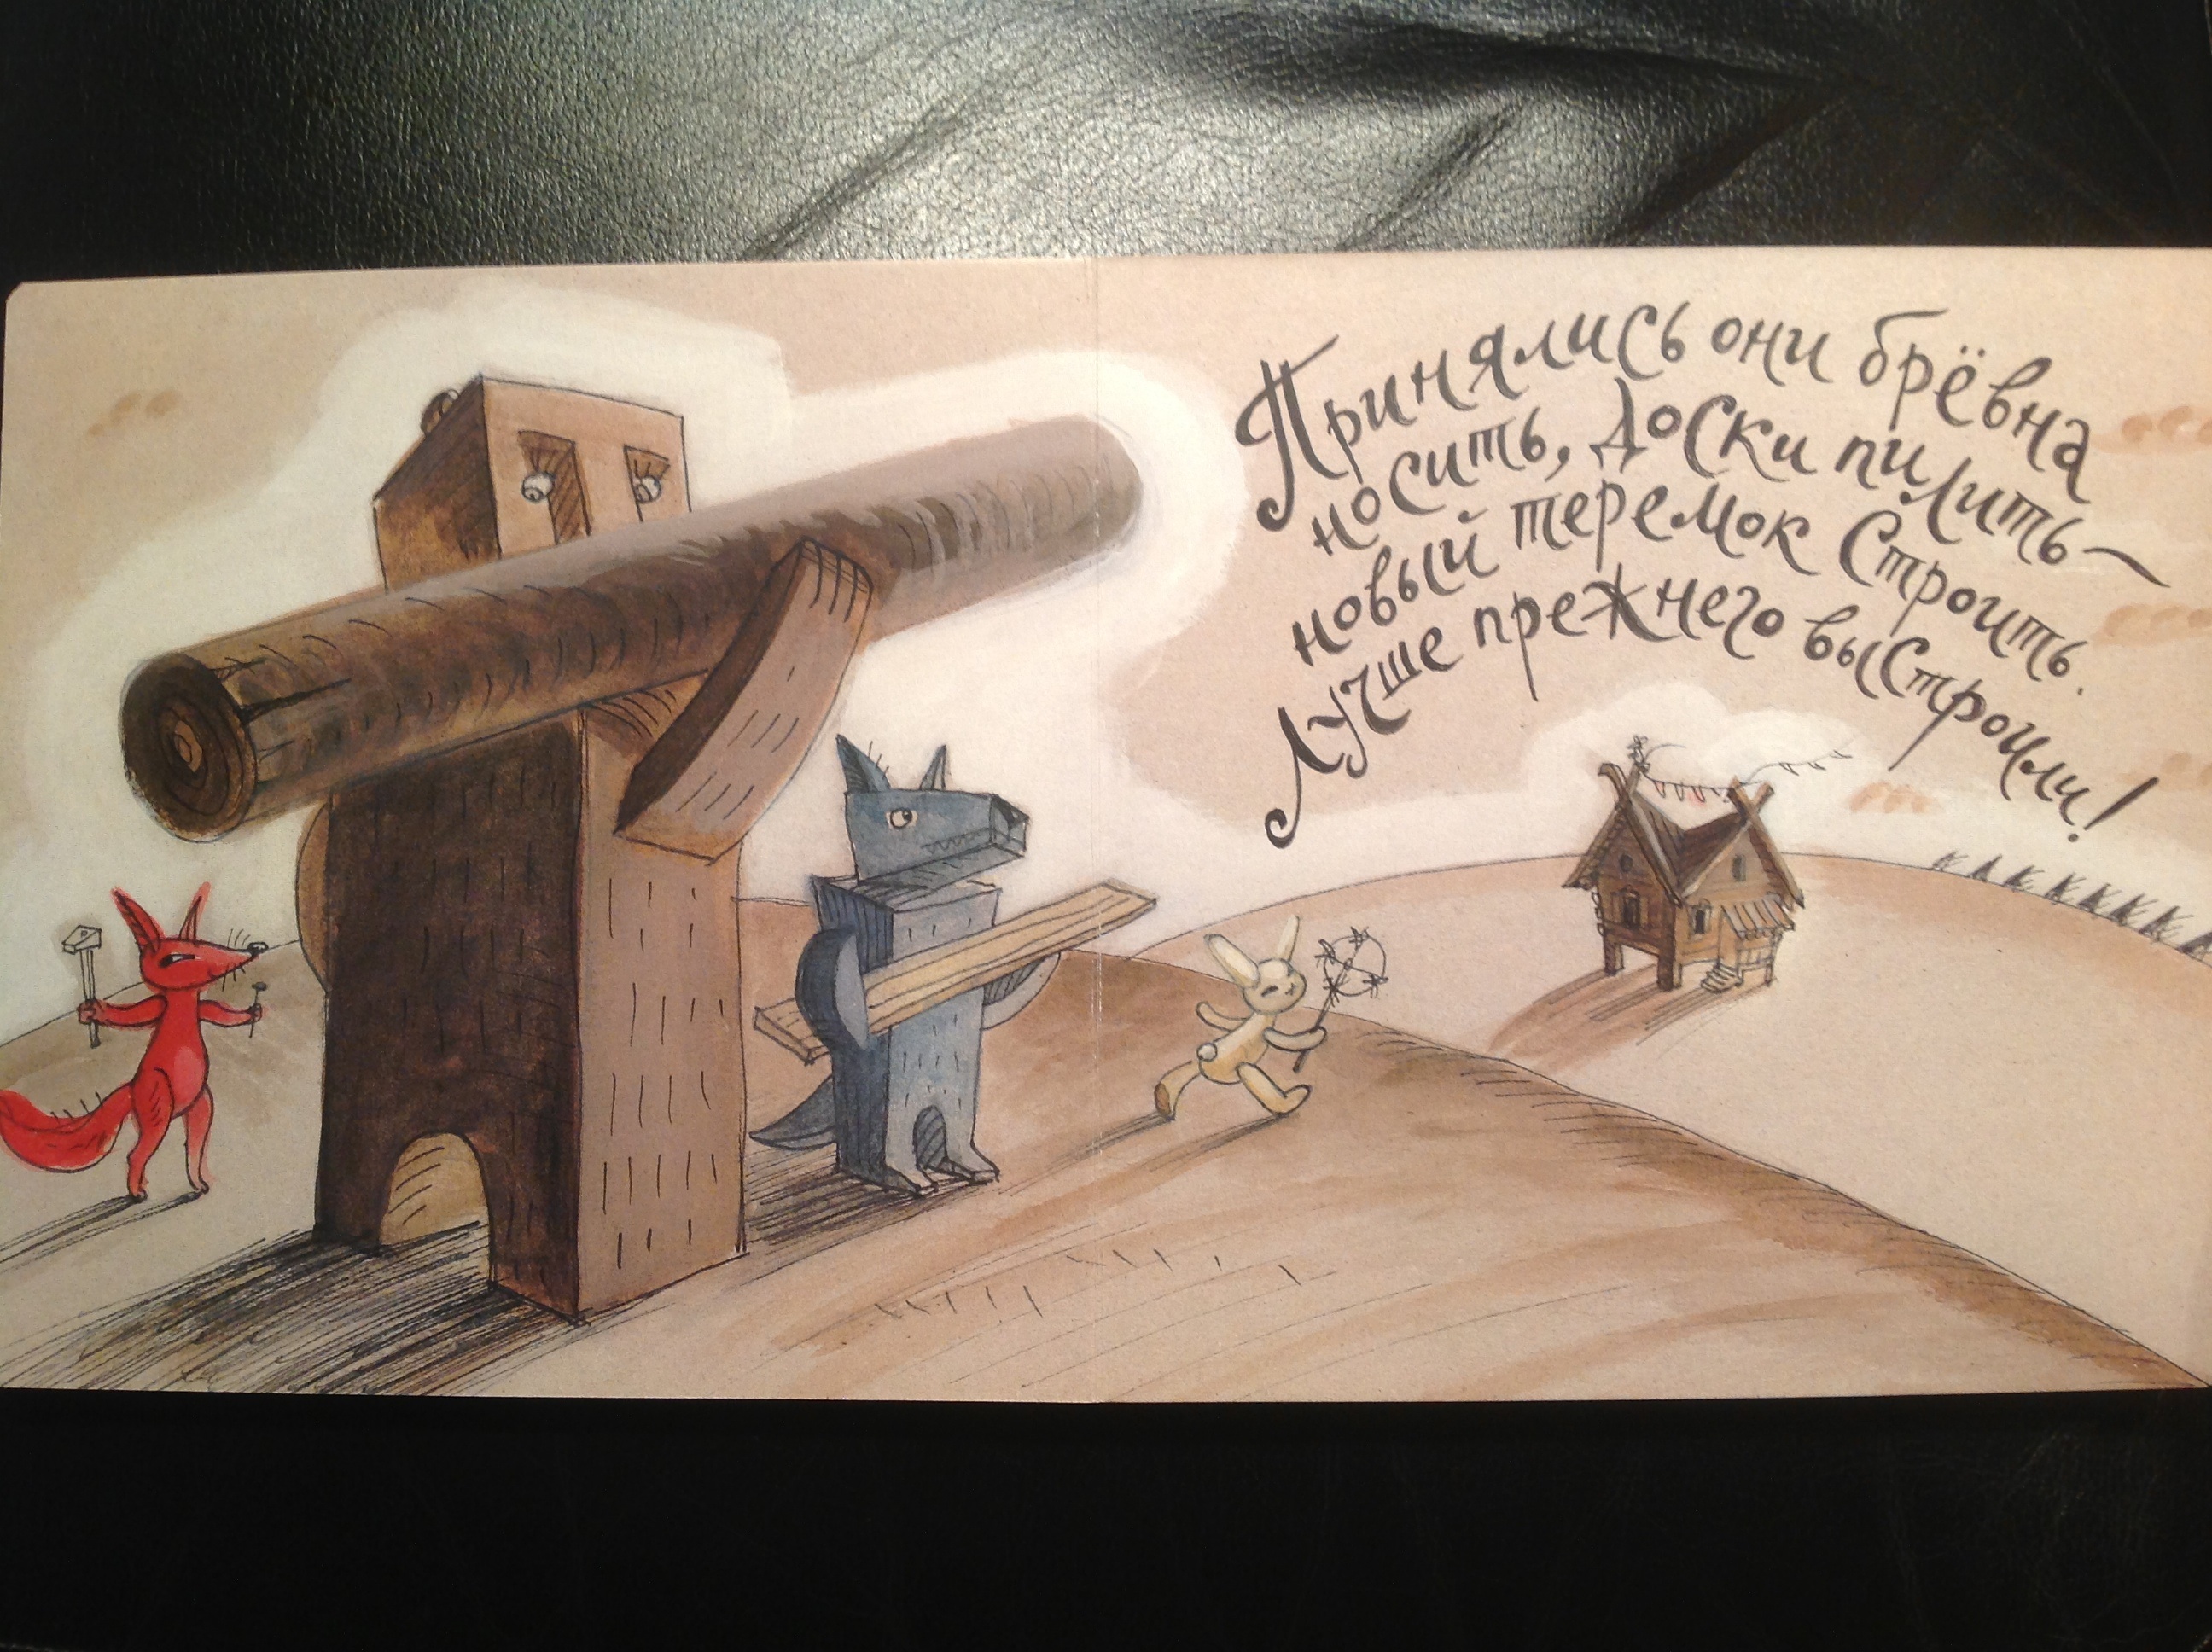 Принялись они брёвна
носить, доски пилить —
новый теремок строить.
Лучше прежнего выстроили!